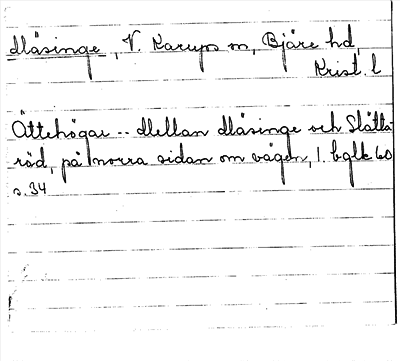 Måsinge, V. Karups sn, Bjäre hd,
Krist. l
Ättehögar -- Mellan Måsinge och Slätta-
röd, på norra sidan om vägen, 1. bglk 60
s. 34